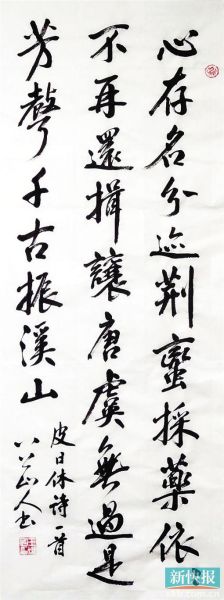 心存名分迹荆蠻採藥依
不再還揖讓唐虞無過是
芳聲千古振溪山
皮日休詩一首
八公山人书
新快报